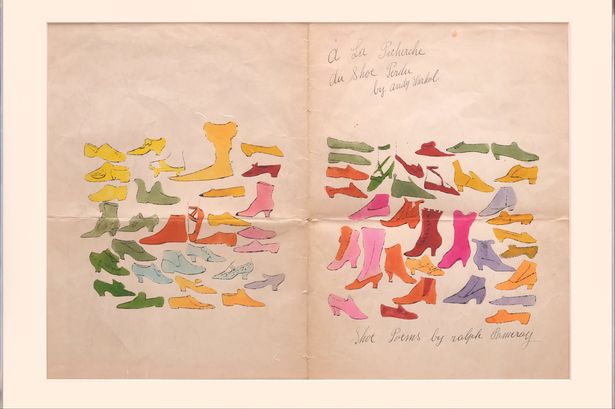 à La Recherche
du Shoe Perdu
by andy Warhol
Shoe Poems by ralph Pomeroy